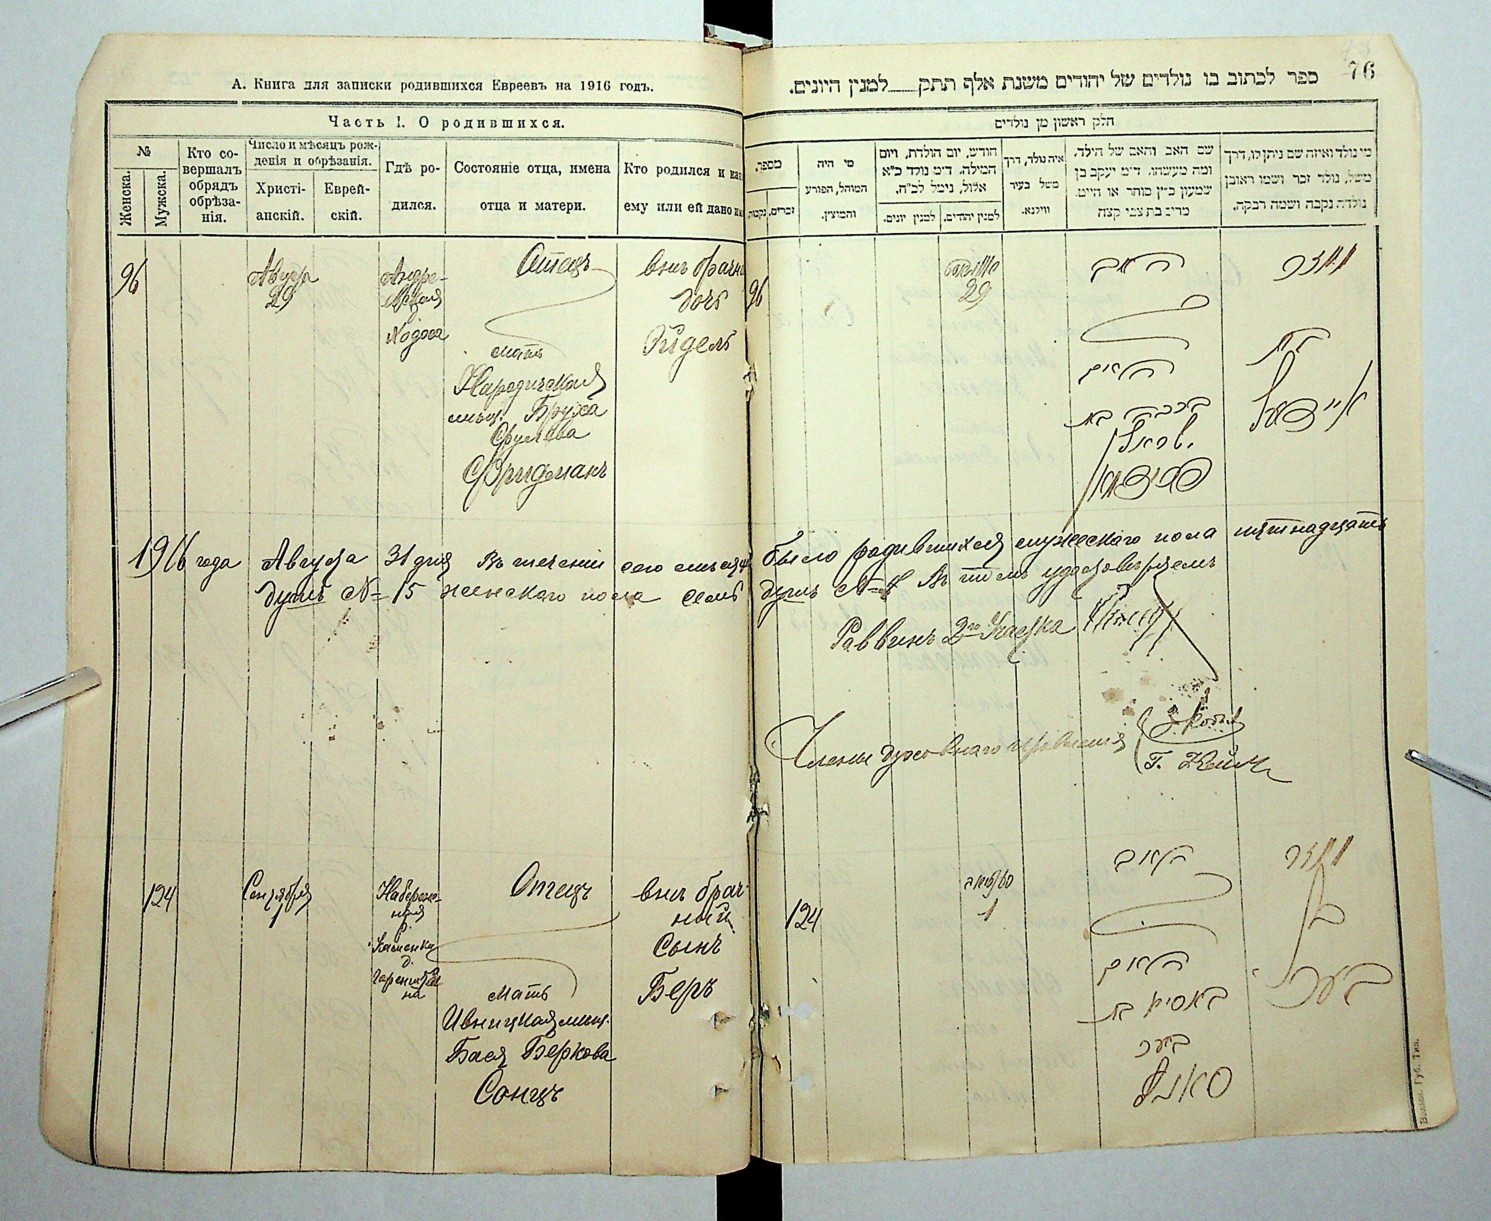 А. Книга для записки родившихся Евреевъ на 1916 годъ.
Часть I. О родившихся.
№
Женска.
Мужска.
Кто со-
вершалъ
обрядъ
обрѣза-
нія.
Число и мѣсяцъ рож-
денія и обрѣзанія.
Христі-
анскій.
Еврей-
скій.
Гдѣ ро-
дился.
Состояніе отца, имена
отца и матери.
Кто родился и
ему или ей дано
96
Августа
29
Отецъ
мать
мѣщ. Бруха
Фридманъ
внѣ брачн
дочь
Эйдель
1916 года Августа 31 дня Въ теченіи сего мѣсяца
душъ № 15 женскаго пола семь
124
Сентября
1
Отецъ
мать
Ивницкая мѣщ.
Бася Беркова
Сонцъ
внѣ брач-
ный
Сынъ
Беръ
76
ספר לכתוב בו נולדים של יהודים משנת אלף תתק למנין היונים.
חלק ראשון מן נולדים
מספר.
נקבות.
זכרים.
מי היה
המוהל, הפורע
והמוצץ.
חודש, יום הולדת, ויום
המילה. ד״מ נולד כ״א
אלול, נימל לכ״ח.
למנין יונים.
למנין יהודים.
איה נולד, דרך
משל בעיר
ווילנא.
שם האב והאם של הילד,
ומה מעשהו. ד״מ יעקב בן
שמעון כ״ץ סוחר או חייט.
מרים בת צבי קצח
מי נולד ואיזה שם ניתן לו, דרך
משל, נולד זכר ושמו ראובן
נולדה נקבה ושמה רבקה.
96
29
האב
האם
ישראל
פרידמאן
בת
איידעל
было родившихся мужескаго пола пятнадцать
душъ № 7 Въ томъ удостовѣряемъ
Раввинъ 2го Участка
Члены духовнаго правленія
124
1
האב
האם
באסיא בת
בער
סאנץ
בן
בער
Волын. Губ. Тип.